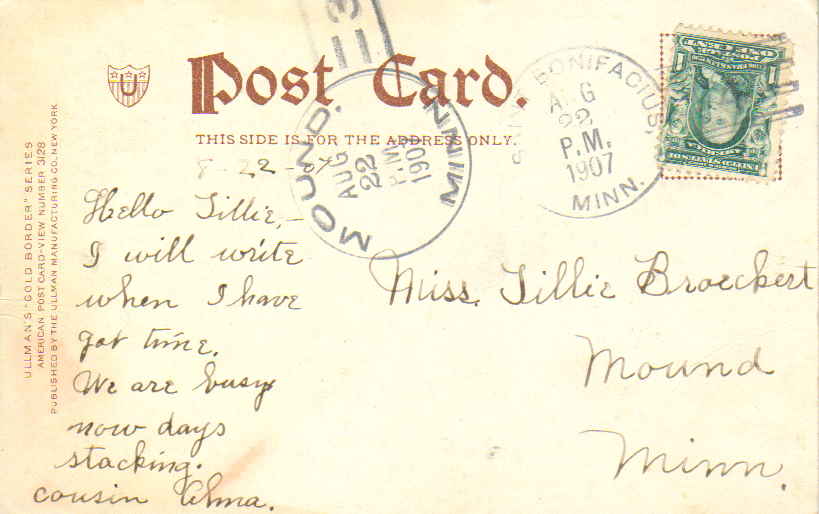 U
Post Card.
THIS SIDE IS FOR THE ADDRESS ONLY.
ULLMAN'S "GOLD BORDER" SERIES
AMERICAN POST CARD-VIEW NUMBER 3128
PUBLISHED BY THE ULLMAN MANUFACTURING CO. NEW YORK
MOUND. MINN
AUG
22
P.M.
1907
BONIFACIUS,
AUG
22
P.M.
1907
MINN.
8-22-07
Hello Tillie,
I will write
when I have
got time.
We are busy
now days
stacking.
cousin Alma.
Miss. Tillie Broeckert
Mound
Minn.